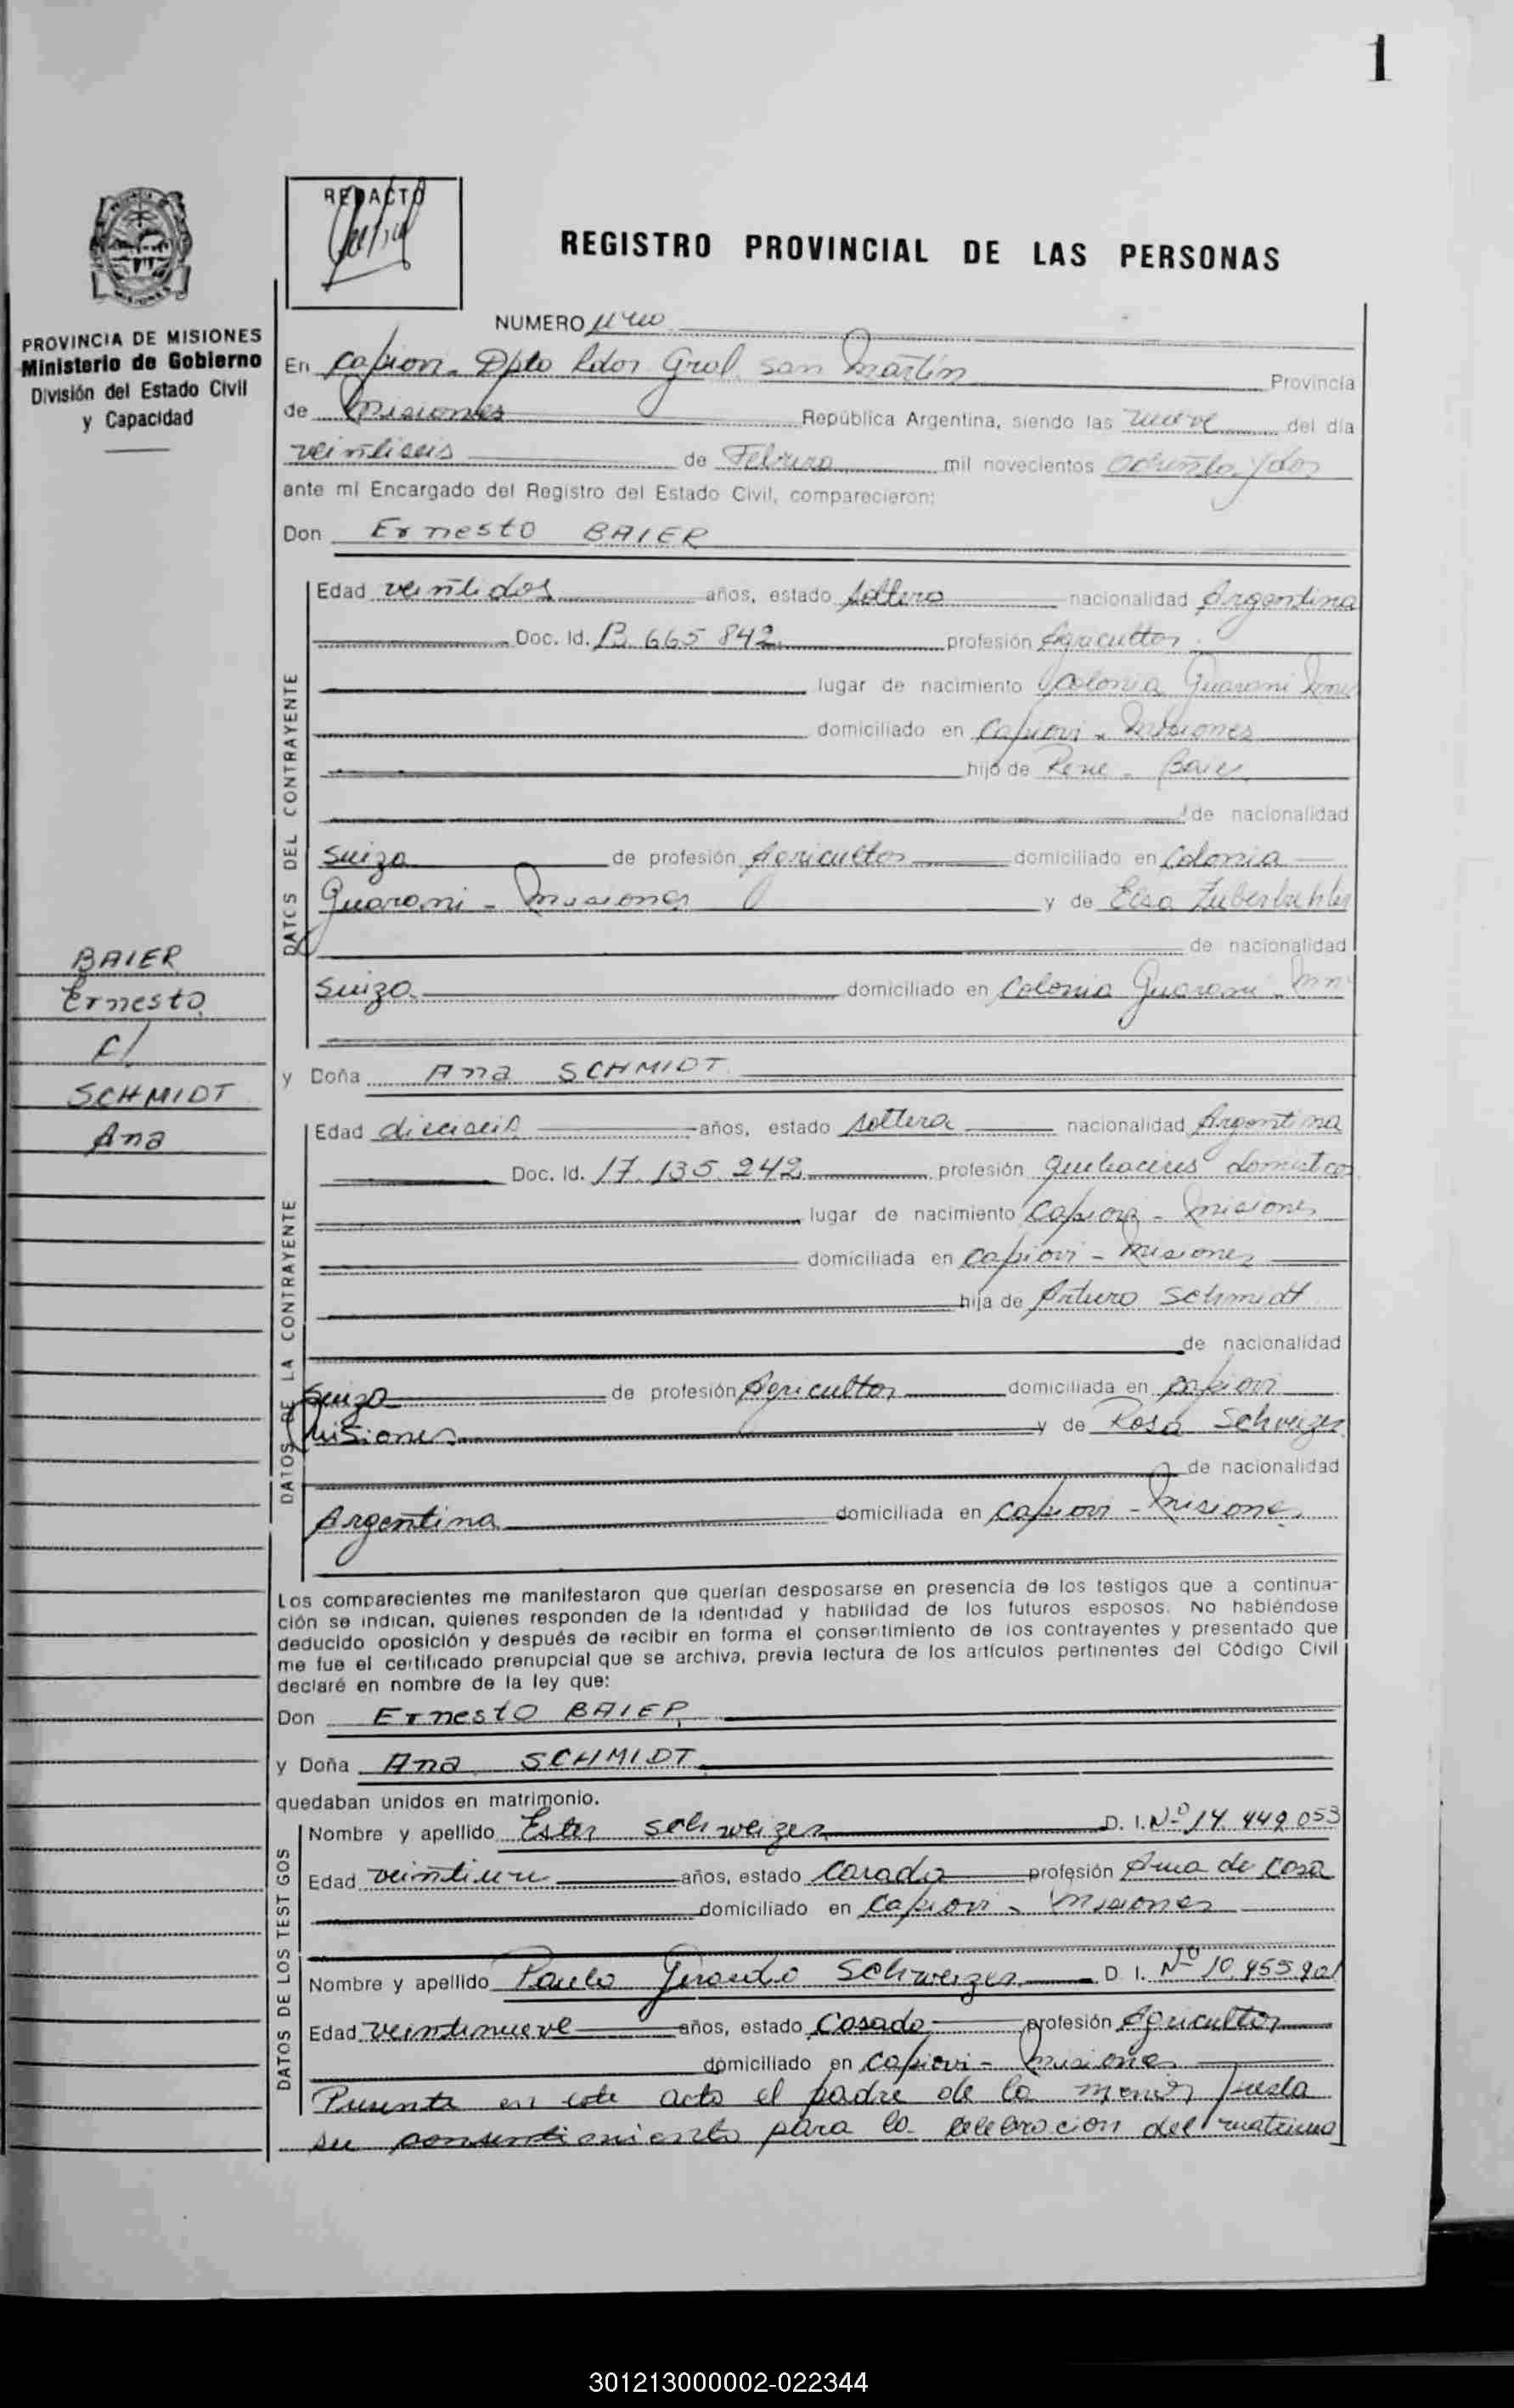 1
REDACTO
REGISTRO PROVINCIAL DE LAS PERSONAS
PROVINCIA DE MISIONES
Ministerio de Gobierno
División del Estado Civil
y Capacidad
NUMERO
En Capiovi - Dpto Ldor Gral San Martin Provincia
de Misiones República Argentina, siendo las nueve del día
veintiseis de Febrero mil novecientos ochenta y dos
ante mi Encargado del Registro del Estado Civil, comparecieron:
Don Ernesto BAIER
DATOS DEL CONTRAYENTE
Edad veintidos años, estado soltero nacionalidad Argentina
Doc. Id. 13.665.842 profesión Agricultor
lugar de nacimiento Colonia Guarani
domiciliado en Capiovi - Misiones
hijo de Rene Baier
de nacionalidad
Suiza de profesión Agricultor domiciliado en Colonia
Guarani - Misiones y de Elsa Zuberbuhler
de nacionalidad
Suiza domiciliado en Colonia Guarani - Mnes
BAIER
Ernesto
c/
SCHMIDT
Ana
y Doña Ana SCHMIDT
DATOS DE LA CONTRAYENTE
Edad dieciseis años, estado soltera nacionalidad Argentina
Doc. Id. 17.135.242 profesión quehaceres domesticos
lugar de nacimiento Capiovi - Misiones
domiciliada en Capiovi - Misiones
hija de Arturo Schmidt
de nacionalidad
Suiza de profesión Agricultor domiciliada en Capiovi
Misiones y de Rosa Schweizer
de nacionalidad
Argentina domiciliada en Capiovi - Misiones
Los comparecientes me manifestaron que querían desposarse en presencia de los testigos que a continua-
ción se indican, quienes responden de la identidad y habilidad de los futuros esposos. No habiéndose
deducido oposición y después de recibir en forma el consentimiento de los contrayentes y presentado que
me fue el certificado prenupcial que se archiva, previa lectura de los artículos pertinentes del Código Civil
declaré en nombre de la ley que:
Don Ernesto BAIER
y Doña Ana SCHMIDT
quedaban unidos en matrimonio.
DATOS DE LOS TESTIGOS
Nombre y apellido Ester Schweizer D. I. Nº 14.449.053
Edad veintiun años, estado casada profesión Ama de casa
domiciliado en Capiovi - Misiones
Nombre y apellido Paulo Gerardo Schweizer D. I. Nº
Edad veintinueve años, estado Casado profesión Agricultor
domiciliado en Capiovi - Misiones
Presente en este acto el padre de la menor presta
su consentimiento para la celebracion del matrimo
301213000002-022344